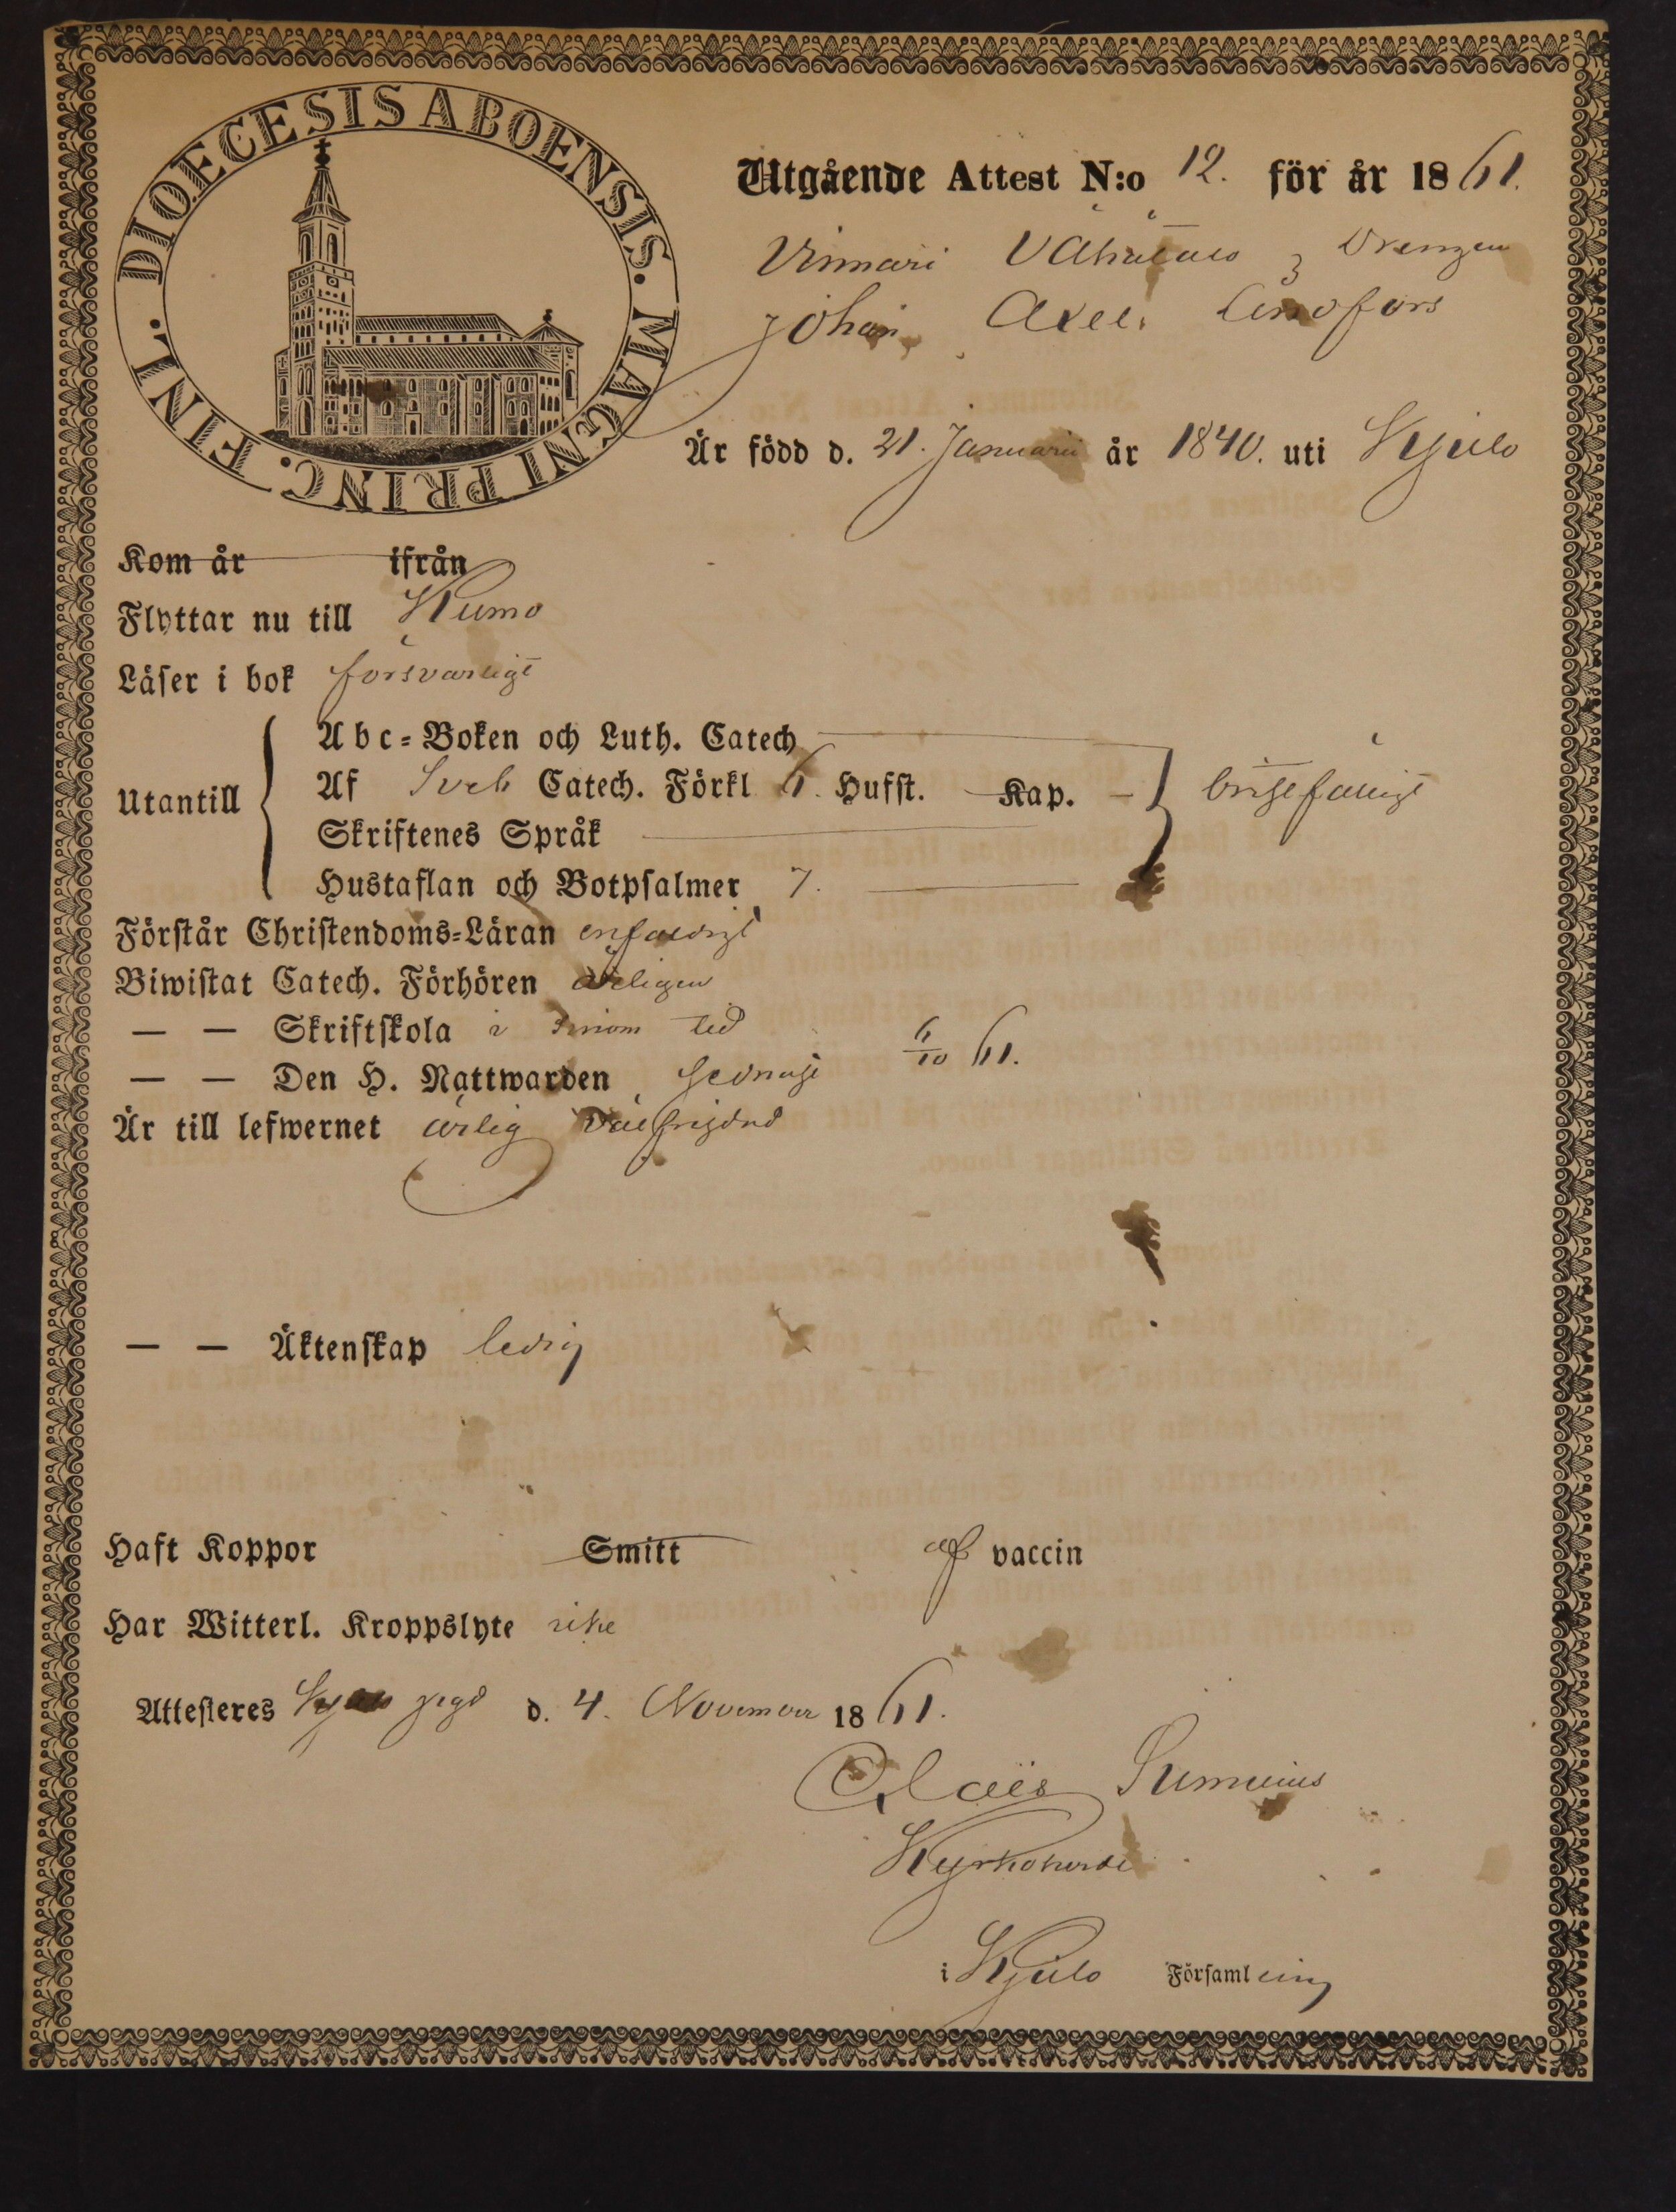 DIOECESIS ABOENSIS. MAGNI PRINC. FINL.
Utgående Attest N:o 12. för år 1861.
Vinnari Vähätalo Drengen
Johan Axel Lindfors
Är född d. 21. Januarii år 1840. uti Kjulo
Kom år ifrån
Flyttar nu till Kumo
Läser i bok försvarligt
Utantill
Abc-Boken och Luth. Catech
Af Sveb Catech. Förkl 6. Hufst. Kap. – bristfälligt
Skriftenes Språk
Hustaflan och Botpsalmer 7.
Förstår Christendoms-Läran enfaldigt
Biwistat Catech. Förhören årligen
— — Skriftskola i sinom tid
— — Den H. Nattwarden sednast 6/10 61.
Är till lefwernet ärlig välfrejdad
— — Äktenskap ledig
Haft Koppor Smitt af vaccin
Har Witterl. Kroppslyte icke
Attesteres Kjulo pgd d. 4. November 1861.
Claës
Kyrkoherde
i Kjulo Församling